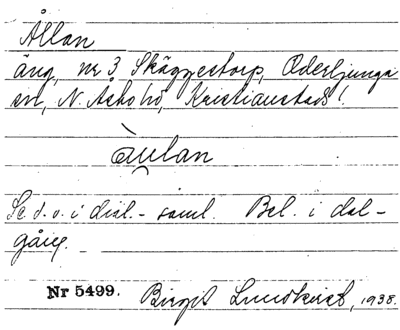 Ållan
äng, nr 3 Skäggestorp, Oderljunga
sn, N. Åsbo hd, Kristianstads l.
àu̯lan
Se d. o. i dial.- saml. Bel. i dal-
gång.
Nr 5499. Birgit Lundkvist, 1938.